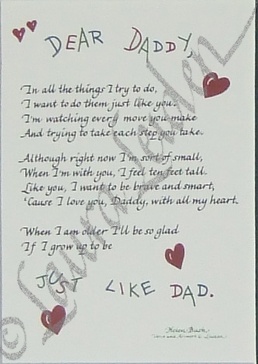 DEAR DADDY,
In all the things I try to do,
I want to do them just like you.
I'm watching every move you make
And trying to take each step you take.
Although right now I'm sort of small,
When I'm with you, I feel ten feet tall.
Like you, I want to be brave and smart,
'Cause I love you, Daddy, with all my heart.
When I am older I'll be so glad
If I grow up to be
JUST LIKE DAD.
© Laura Leiden